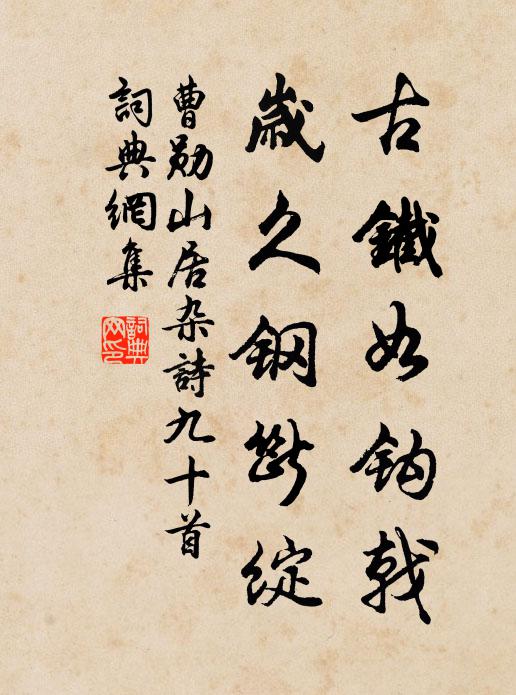 古鐵如鈎戟
歲久鋼斷綻
曹勛山居杂詩九十首
詞典網集
詞典
网印